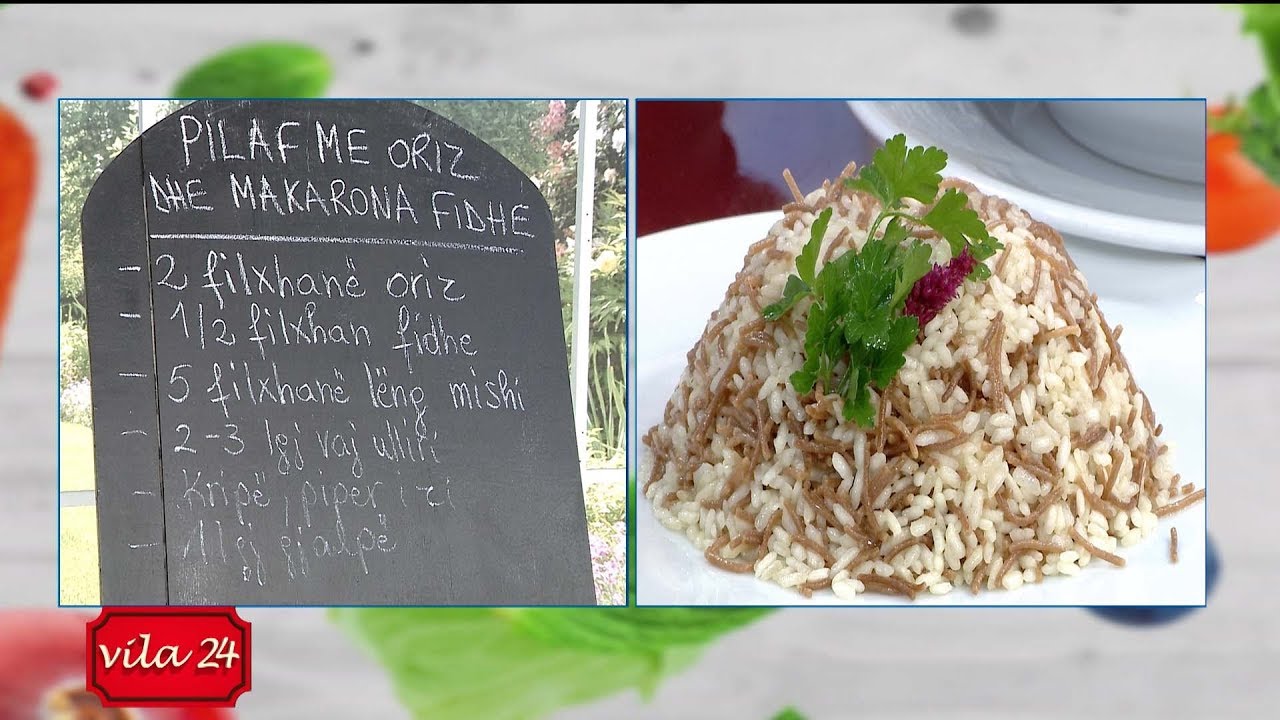 PILAF ME ORIZ
DHE MAKARONA FIDHE
- 2 filxhanë oriz
- 1/2 filxhan fidhe
- 5 filxhanë lëng mishi
- 2-3 lgj vaj ulliri
- Kripë, piper i zi
- 1 lgj gjalpë
vila 24